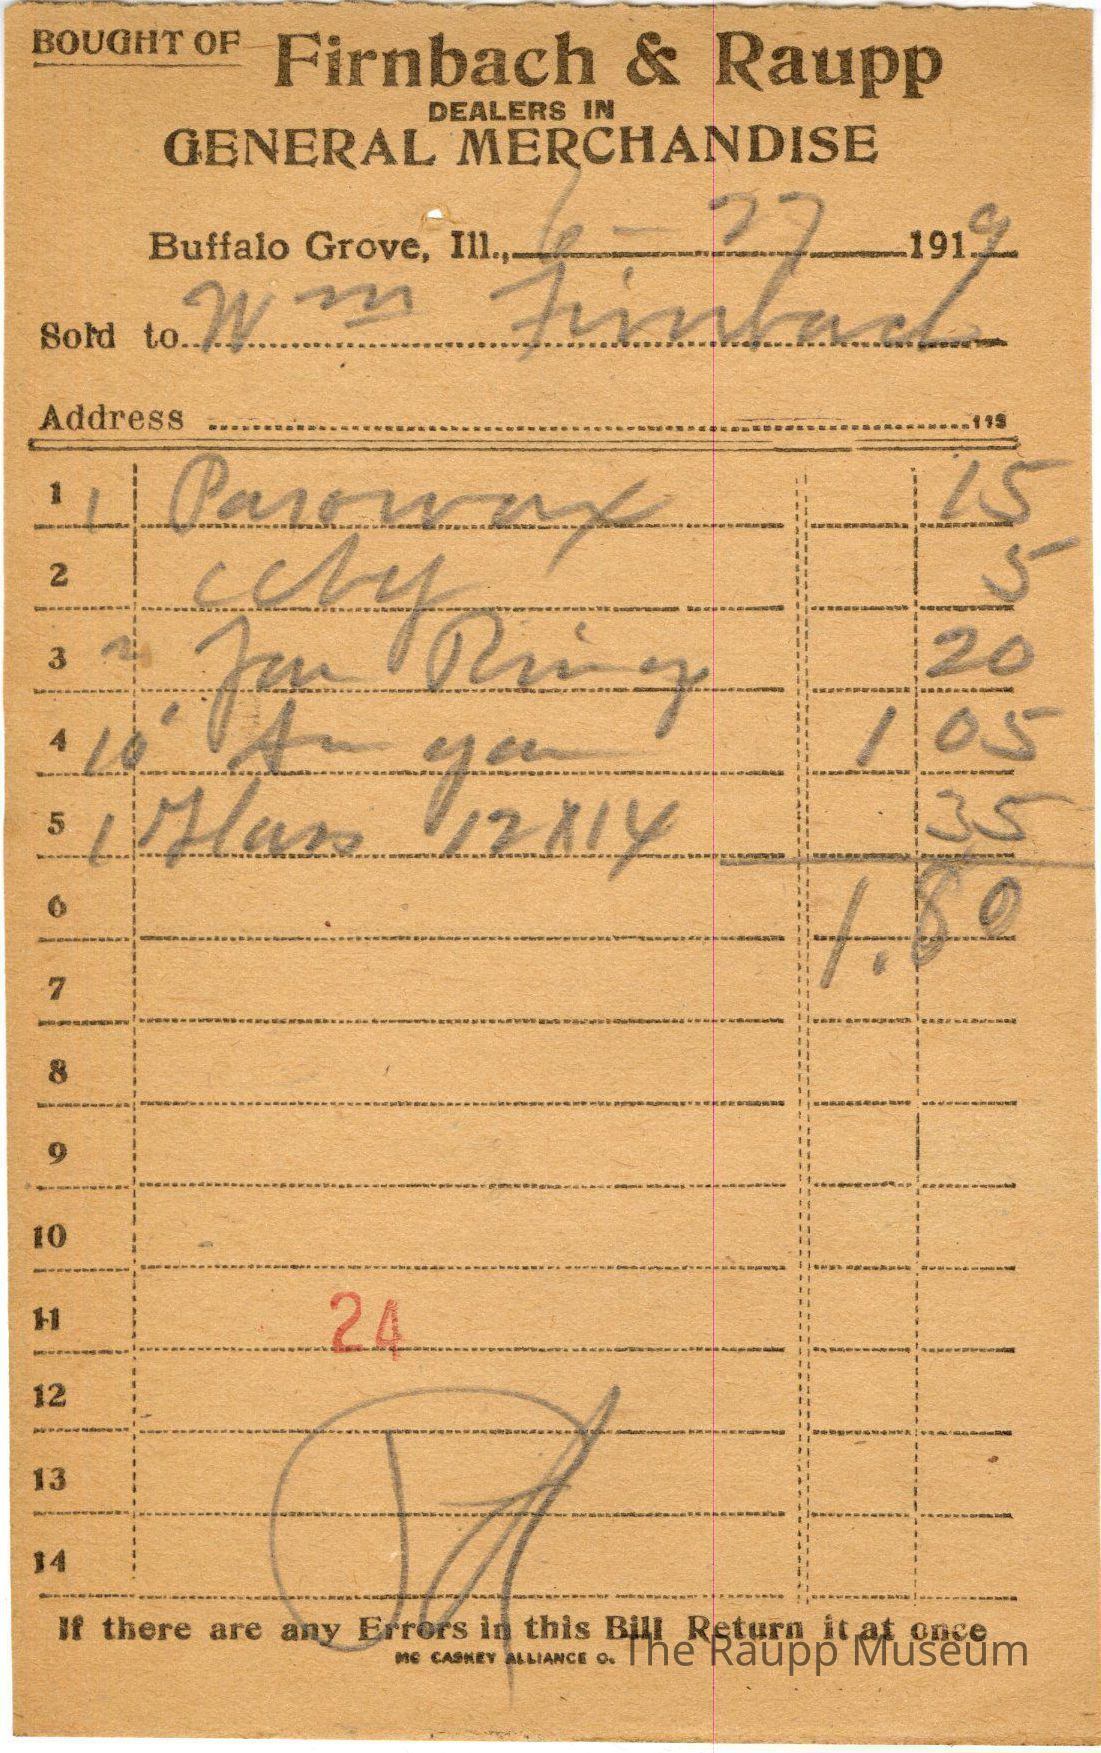 BOUGHT OF Firnbach & Raupp
DEALERS IN
GENERAL MERCHANDISE
Buffalo Grove, Ill., 6 - 27 1919
Sold to Wm Firnbach
Address
1 1 Parowax 15
2 5
3 2 Jar Rings 20
4 10 1 05
5 1 Glass 12X14 35
6 1.80
7
8
9
10
11 24
12
13
14
If there are any Errors in this Bill Return it at once
MC CASKEY ALLIANCE O.
The Raupp Museum